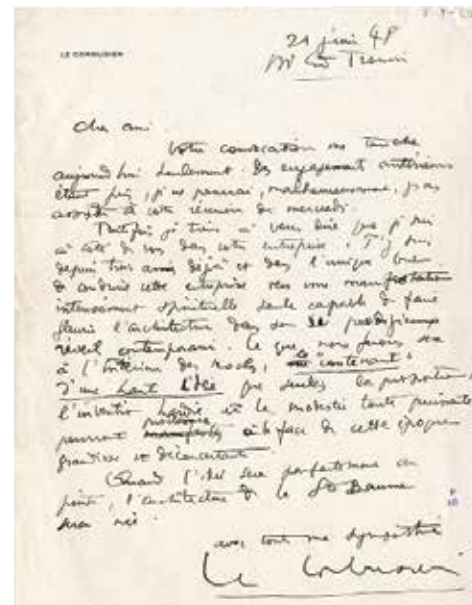 LE CORBUSIER
21 juin 48
Cher ami
Votre convocation me touche
aujourd'hui seulement. Des engagements antérieurs
étant pris, je ne pourrai, malheureusement, pas
assister à cette réunion de mercredi.
Toutefois je tiens à vous dire que je suis
à côté de vous dans cette entreprise. J'y suis
depuis trois ans déjà et dans l'unique
de conduire cette entreprise vers une manifestation
intensément spirituelle seule capable de faire
fleurir l'architecture dans son prodigieux
réveil contemporain. Ce que nous ferons sera
à l'intérieur des rochs, le "contenant"
d'une haute idée que seules la proportion,
l'invention hardie et la modestie toute puissante
pourront à la face de cette époque
grandiose et déconcertante.
Quand l'idée sera parfaitement au
point, l'architecture de la Ste Baume
sera née.
avec toute ma sympathie
Le Corbusier